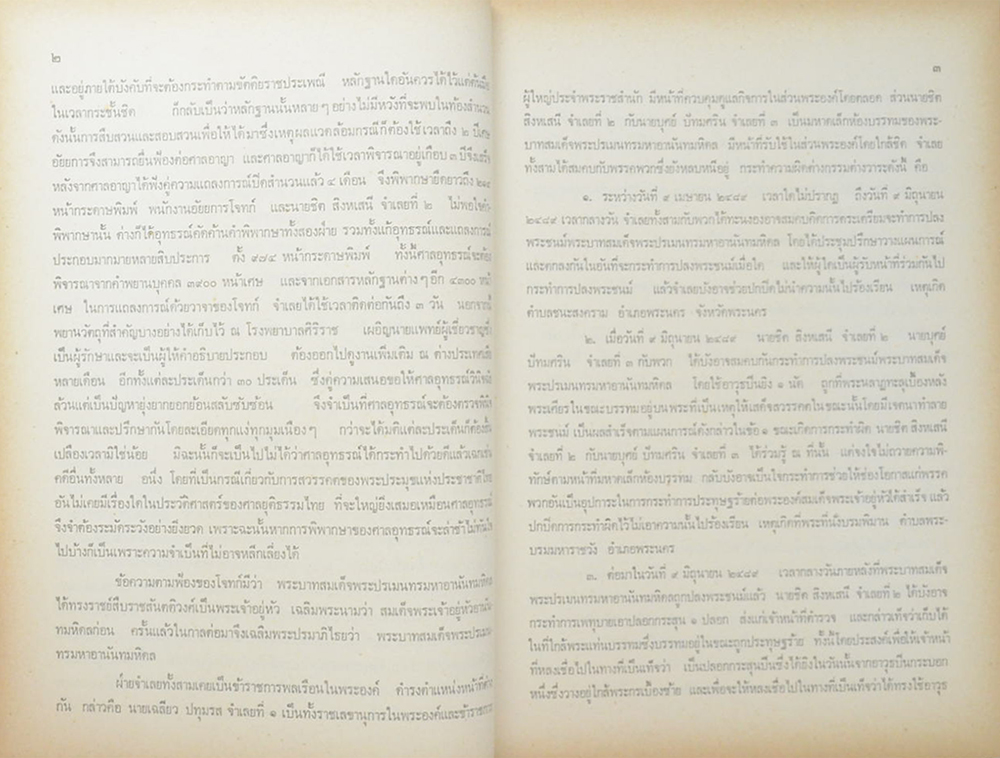 ๒
และอยู่ภายใต้บังคับที่จะต้องกระทำตามขัตติยราชประเพณี หลักฐานใดอันควรได้ไว้แต่ต้นมือ
ในเวลากระชั้นชิด ก็กลับเป็นว่าหลักฐานนั้นหลายๆ อย่างไม่มีหวังที่จะพบในท้องสำนวน
ดังนั้นการสืบสวนและสอบสวนเพื่อให้ได้มาซึ่งเหตุผลแวดล้อมกรณีก็ต้องใช้เวลาถึง ๒ ปีเศษ
อัยยการจึงสามารถยื่นฟ้องต่อศาลอาญา และศาลอาญาก็ได้ใช้เวลาพิจารณาอยู่เกือบ ๓ ปีจึงเสร็จ
หลังจากศาลอาญาได้ฟังคู่ความแถลงการณ์ปิดสำนวนแล้ว ๔ เดือน จึงพิพากษายืดยาวถึง
หน้ากระดาษพิมพ์ พนักงานอัยยการโจทก์ และนายชิต สิงหเสนี จำเลยที่ ๒ ไม่พอใจคำ-
พิพากษานั้น ต่างก็ได้อุทธรณ์คัดค้านคำพิพากษาทั้งสองฝ่าย รวมทั้งแก้อุทธรณ์และแถลงการณ์
ประกอบมากมายหลายสิบประการ ตั้ง ๙๗๔ หน้ากระดาษพิมพ์ ทั้งนี้ศาลอุทธรณ์จะต้อง
พิจารณาจากคำพยานบุคคล ๓๙๐๐ หน้าเศษ และจากเอกสารหลักฐานต่างๆ อีก ๔๓๐๐ หน้า
เศษ ในการแถลงการณ์ด้วยวาจาของโจทก์ จำเลยได้ใช้เวลาติดต่อกันถึง ๓ วัน นอกจากนี้
พยานวัตถุที่สำคัญบางอย่างได้เก็บไว้ ณ โรงพยาบาลศิริราช เผอิญนายแพทย์ผู้เชี่ยวชาญซึ่ง
เป็นผู้รักษาและจะเป็นผู้ให้คำอธิบายประกอบ ต้องออกไปดูงานเพิ่มเติม ณ ต่างประเทศเสีย
หลายเดือน อีกทั้งแต่ละประเด็นกว่า ๓๐ ประเด็น ซึ่งคู่ความเสนอขอให้ศาลอุทธรณ์วินิจฉัย
ล้วนแต่เป็นปัญหายุ่งยากยอกย้อนสลับซับซ้อน จึงจำเป็นที่ศาลอุทธรณ์จะต้องตรวจพินิจ
พิจารณาและปรึกษากันโดยละเอียดทุกแง่ทุกมุมเนืองๆ กว่าจะได้มติแต่ละประเด็นก็ต้องสิ้น
เปลืองเวลามิใช่น้อย มิฉะนั้นก็จะเป็นไปไม่ได้ว่าศาลอุทธรณ์ได้กระทำไปด้วยดีแล้วเฉกเช่น
คดีอื่นทั้งหลาย อนึ่ง โดยที่เป็นกรณีเกี่ยวกับการสวรรคตของพระประมุขแห่งประชาชาติไทย
อันไม่เคยมีเรื่องใดในประวัติศาสตร์ของศาลยุติธรรมไทย ที่จะใหญ่ยิ่งเสมอเหมือนศาลอุทธรณ์
จึงจำต้องระมัดระวังอย่างยิ่งยวด เพราะฉะนั้นหากการพิพากษาของศาลอุทธรณ์จะล่าช้าไม่ทันใจ
ไปบ้างก็เป็นเพราะความจำเป็นที่ไม่อาจหลีกเลี่ยงได้
ข้อความตามฟ้องของโจทก์มีว่า พระบาทสมเด็จพระปรเมนทรมหาอานันทมหิดล
ได้ทรงราชย์สืบราชสันตติวงศ์เป็นพระเจ้าอยู่หัว เฉลิมพระนามว่า สมเด็จพระเจ้าอยู่หัวอานัน-
ทมหิดลก่อน ครั้นแล้วในกาลต่อมาจึงเฉลิมพระปรมาภิไธยว่า พระบาทสมเด็จพระปรเมน-
ทรมหาอานันทมหิดล
ฝ่ายจำเลยทั้งสามเคยเป็นข้าราชการพลเรือนในพระองค์ ดำรงตำแหน่งหน้าที่ต่าง
กัน กล่าวคือ นายเฉลียว ปทุมรส จำเลยที่ ๑ เป็นทั้งราชเลขานุการในพระองค์และข้าราชการ
๓
ผู้ใหญ่ประจำพระราชสำนัก มีหน้าที่ควบคุมดูแลกิจการในส่วนพระองค์โดยตลอด ส่วนนายชิต
สิงหเสนี จำเลยที่ ๒ กับนายบุศย์ ปัทมศริน จำเลยที่ ๓ เป็นมหาดเล็กห้องบรรทมของพระ-
บาทสมเด็จพระปรเมนทรมหาอานันทมหิดล มีหน้าที่รับใช้ในส่วนพระองค์โดยใกล้ชิด จำเลย
ทั้งสามได้สมคบกับพรรคพวกซึ่งยังหลบหนีอยู่ กระทำความผิดต่างกรรมต่างวาระดังนี้ คือ
๑. ระหว่างวันที่ ๙ เมษายน ๒๔๘๙ เวลาใดไม่ปรากฏ ถึงวันที่ ๙ มิถุนายน
๒๔๘๙ เวลากลางวัน จำเลยทั้งสามกับพวกได้ทะนงองอาจสมคบคิดการตระเตรียมจะทำการปลง
พระชนม์พระบาทสมเด็จพระปรเมนทรมหาอานันทมหิดล โดยได้ประชุมปรึกษาวางแผนการณ์
และตกลงกันในอันที่จะกระทำการปลงพระชนม์เมื่อใด และให้ผู้ใดเป็นผู้รับหน้าที่ร่วมกันไป
กระทำการปลงพระชนม์ แล้วจำเลยบังอาจช่วยปกปิดไม่นำความนั้นไปร้องเรียน เหตุเกิด
ตำบลชนะสงคราม อำเภอพระนคร จังหวัดพระนคร
๒. เมื่อวันที่ ๙ มิถุนายน ๒๔๘๙ นายชิต สิงหเสนี จำเลยที่ ๒ นายบุศย์
ปัทมศริน จำเลยที่ ๓ กับพวก ได้บังอาจสมคบกันกระทำการปลงพระชนม์พระบาทสมเด็จ
พระปรเมนทรมหาอานันทมหิดล โดยใช้อาวุธปืนยิง ๑ นัด ถูกที่พระนลาฏทะลุเบื้องหลัง
พระเศียรในขณะบรรทมอยู่บนพระที่เป็นเหตุให้เสด็จสวรรคตในขณะนั้นโดยมีเจตนาทำลาย
พระชนม์ เป็นผลสำเร็จตามแผนการณ์ดังกล่าวในข้อ ๑ ขณะเกิดการกระทำผิด นายชิต สิงหเสนี
จำเลยที่ ๒ กับนายบุศย์ ปัทมศริน จำเลยที่ ๓ ได้ร่วมรู้ ณ ที่นั้น แต่จงใจไม่ถวายความพิ-
ทักษ์ตามหน้าที่มหาดเล็กห้องบรรทม กลับบังอาจเป็นใจกระทำการช่วยให้ช่องโอกาสแก่พรรค
พวกอันเป็นอุปการะในการกระทำการประทุษฐร้ายต่อพระองค์สมเด็จพระเจ้าอยู่หัวให้ได้สำเร็จ แล้ว
ปกปิดการกระทำผิดไว้ไม่เอาความนั้นไปร้องเรียน เหตุเกิดที่พระที่นั่งบรมพิมาน ตำบลพระ-
บรมมหาราชวัง อำเภอพระนคร
๓. ต่อมาในวันที่ ๙ มิถุนายน ๒๔๘๙ เวลากลางวันภายหลังที่พระบาทสมเด็จ
พระปรเมนทรมหาอานันทมหิดลถูกปลงพระชนม์แล้ว นายชิต สิงหเสนี จำเลยที่ ๒ ได้บังอาจ
กระทำการเพทุบายเอาปลอกกระสุน ๑ ปลอก ส่งแก่เจ้าหน้าที่ตำรวจ และกล่าวเท็จว่าเก็บได้
ในที่ใกล้พระแท่นบรรทมซึ่งบรรทมอยู่ในขณะถูกประทุษฐร้าย ทั้งนี้โดยประสงค์เพื่อให้เจ้าหน้า
ที่หลงเชื่อไปในทางที่เป็นเท็จว่า เป็นปลอกกระสุนปืนซึ่งได้ยิงในวันนั้นจากอาวุธปืนกระบอก
หนึ่งซึ่งวางอยู่ใกล้พระกรเบื้องซ้าย และเพื่อจะให้หลงเชื่อไปในทางที่เป็นเท็จว่าได้ทรงใช้อาวุธ